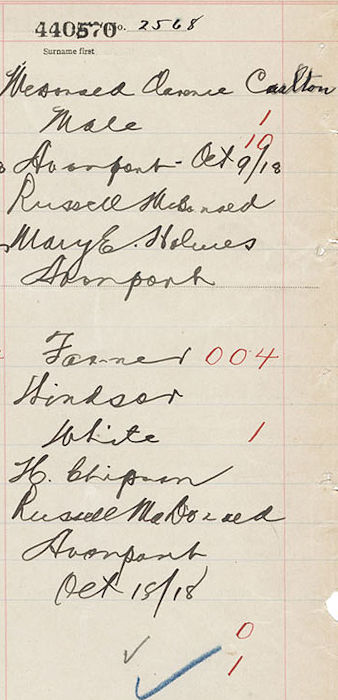 440570 No. 2568
Surname first
McDonald Clarence Carlton
Male 1
10
Avonport - Oct 9/18
Russell McDonald
Mary E. Holmes
Avonport
Farmer 004
Windsor
White 1
H. Chipman
Russell McDonald
Avonport
Oct 18/18
0
1